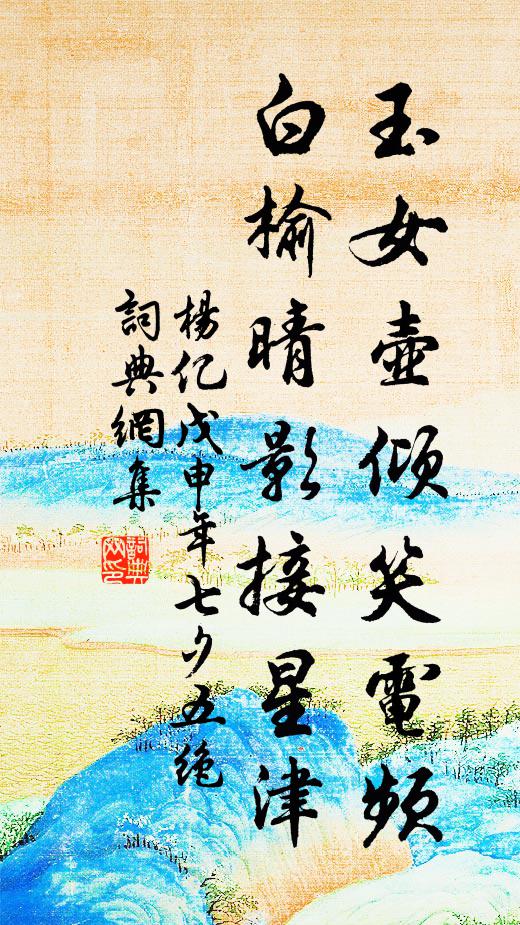 玉女壺傾笑電頻
白榆晴影接星津
楊亿戊申年七夕五绝
詞典網集